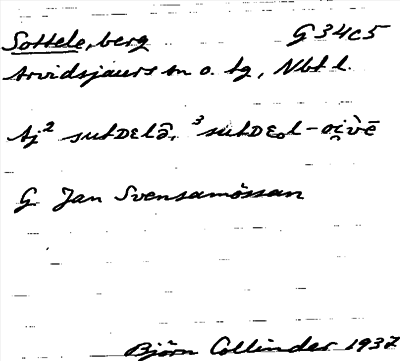 Sottele, berg G 34c5
Arvidsjaurs sn o. tg, Nbt l.
Aj² sutDɛlâ, ³sutDɛₒl-oi̯vē
G. Jan Svensamåssan
Björn Collinder 1937